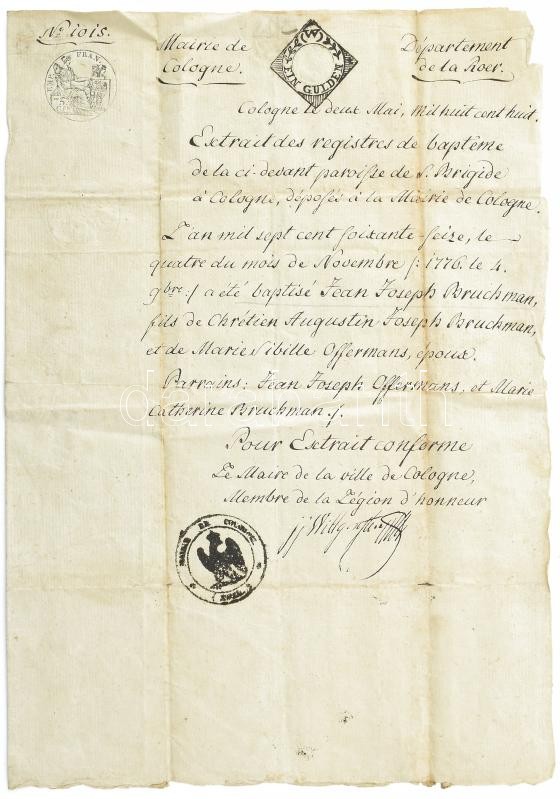 No. 1015.
Mairie de
Cologne.
Département
de la Roer.
EIN GULDEN
W
Cologne le deux Mai, mil huit cent huit.
Extrait des registres de baptême
de la ci-devant paroisse de S. Brigide
à Cologne, déposés à la Mairie de Cologne.
L'an mil sept cent soixante-seize, le
quatre du mois de Novembre /: 1776. le 4.
9bre :/ a été baptisé Jean Joseph Bruchman,
fils de Chrétien Augustin Joseph Bruchman,
et de Marie Sibille Offermans, époux.
Parrains: Jean Joseph Offermans, et Marie
Catherine Bruchman ./.
Pour Extrait conforme
Le Maire de la ville de Cologne,
Membre de la Légion d'honneur
MAIRIE DE COLOGNE